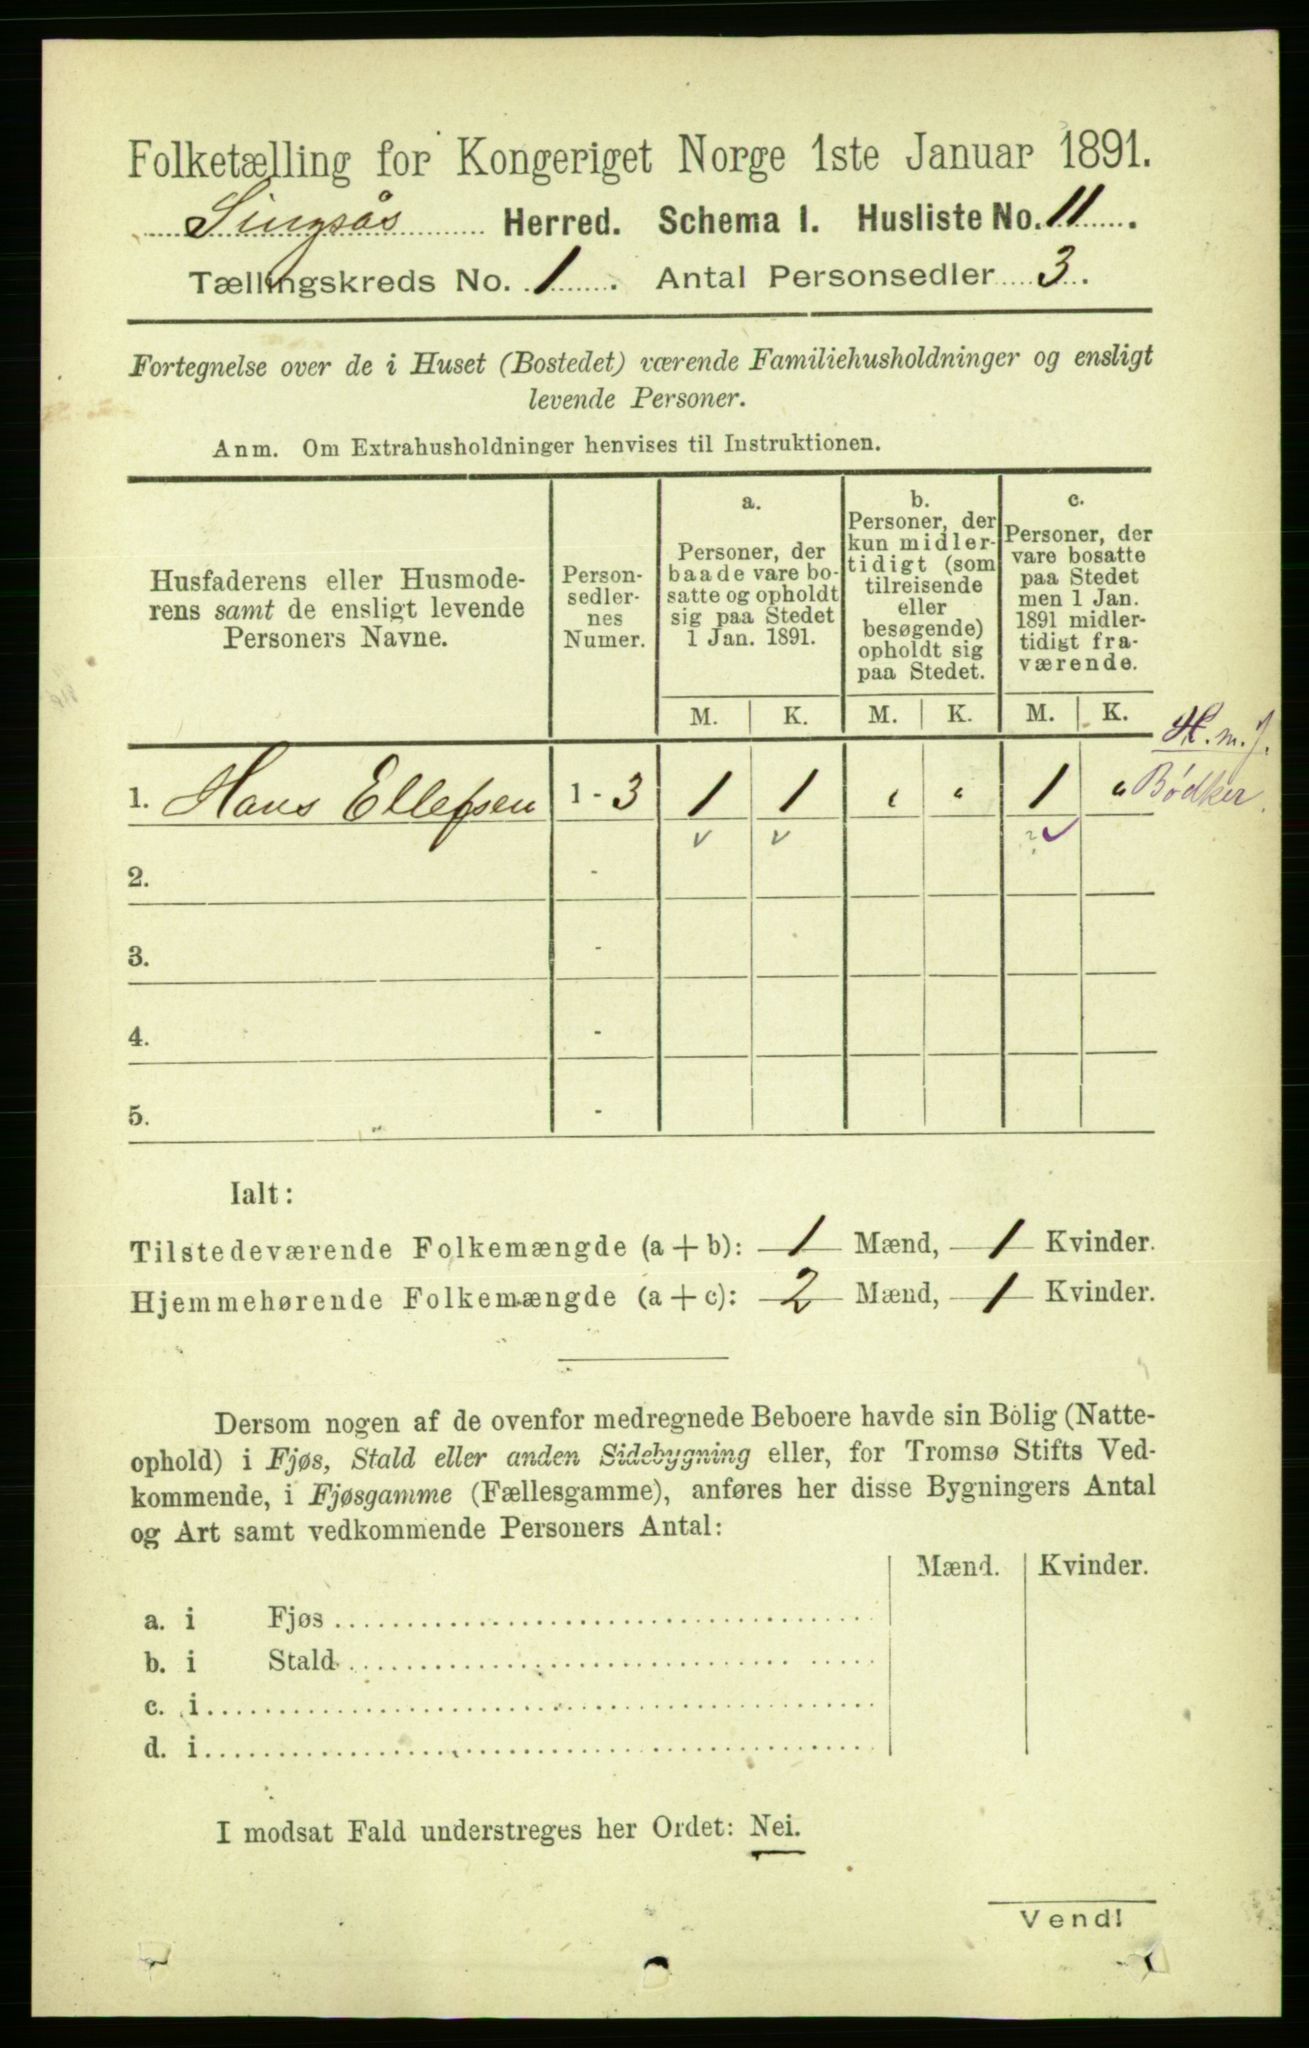 Folketælling for Kongeriget Norge 1ste Januar 1891.
Singsås Herred. Schema I. Husliste No. 11.
Tællingskreds No. 1. Antal Personsedler 3.
Fortegnelse over de i Huset (Bostedet) værende Familiehusholdninger og ensligt
levende Personer.
Anm. Om Extrahusholdninger henvises til Instruktionen.
Husfaderens eller Husmode-
rens samt de ensligt levende
Personers Navne.
Person-
sedler-
nes
Numer.
a.
Personer, der
baade vare bo-
satte og opholdt
sig paa Stedet
1 Jan. 1891.
b.
Personer, der
kun midler-
tidigt (som
tilreisende
eller
besøgende)
opholdt sig
paa Stedet.
c.
Personer, der
vare bosatte
paa Stedet
men 1 Jan.
1891 midler-
tidigt fra-
værende.
M. K. M. K. M. K.
H. m. J.
1. Hans Ellefsen 1 - 3 1 1 " " 1 " Bødker.
2. -
3. -
4. -
5. -
Ialt:
Tilstedeværende Folkemængde (a + b): 1 Mænd, 1 Kvinder.
Hjemmehørende Folkemængde (a + c): 2 Mænd, 1 Kvinder.
Dersom nogen af de ovenfor medregnede Beboere havde sin Bolig (Natte-
ophold) i Fjøs, Stald eller anden Sidebygning eller, for Tromsø Stifts Ved-
kommende, i Fjøsgamme (Fællesgamme), anføres her disse Bygningers Antal
og Art samt vedkommende Personers Antal:
Mænd. Kvinder.
a. i Fjøs
b. i Stald
c. i
d. i
I modsat Fald understreges her Ordet: Nei.
Vend!